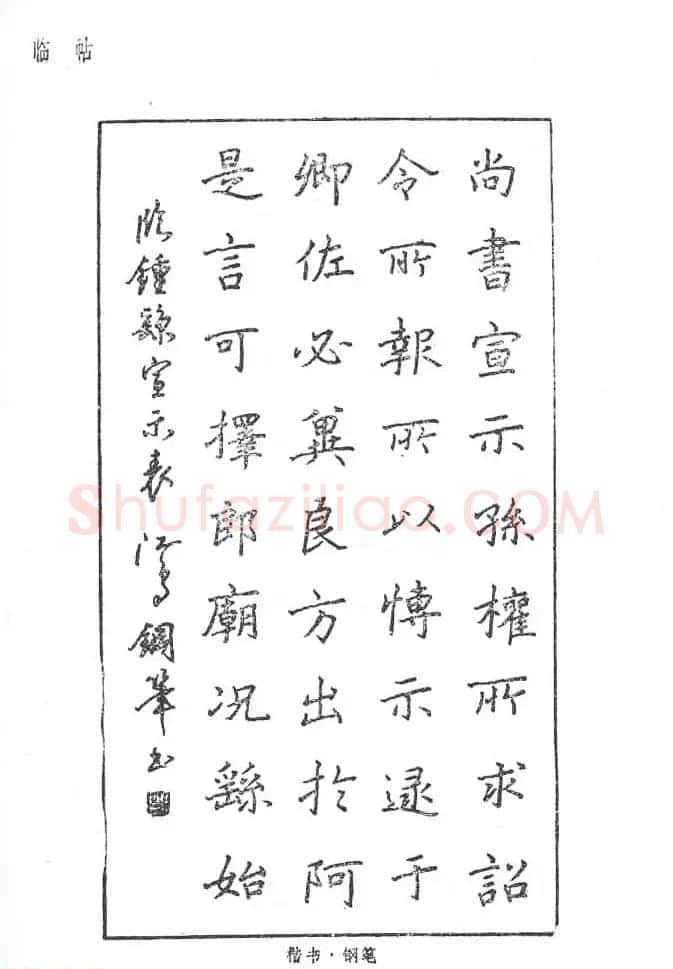 临帖
尚書宣示孫權所求詔
令所報所以慱示逯于
卿佐必冀良方出扵阿
是言可擇郎廟况繇始
临鍾繇宣示表 鋼筆书
楷书·钢笔
Shufaziliao.COM